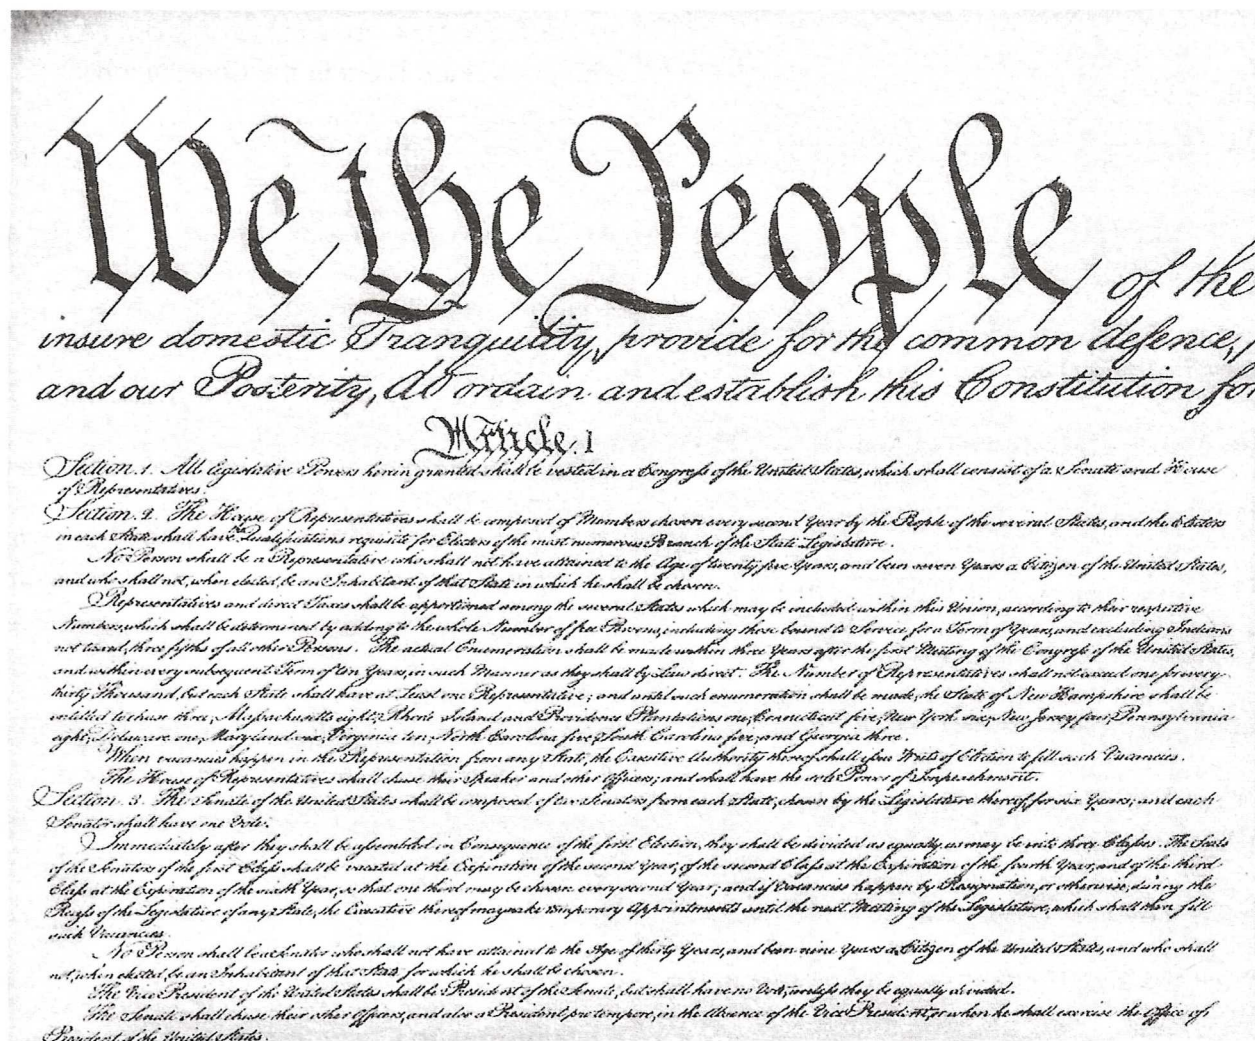 We the People of the
insure domestic Tranquility, provide for the common defence,
and our Posterity, do ordain and establish this Constitution for
Article. I
Section. 1. All legislative Powers herein granted shall be vested in a Congress of the United States, which shall consist of a Senate and House
of Representatives.
Section. 2. The House of Representatives shall be composed of Members chosen every second Year by the People of the several States, and the Electors
in each State shall have the Qualifications requisite for Electors of the most numerous Branch of the State Legislature.
No Person shall be a Representative who shall not have attained to the Age of twenty five Years, and been seven Years a Citizen of the United States,
and who shall not, when elected, be an Inhabitant of that State in which he shall be chosen.
Representatives and direct Taxes shall be apportioned among the several States which may be included within this Union, according to their respective
Numbers, which shall be determined by adding to the whole Number of free Persons, including those bound to Service for a Term of Years, and excluding Indians
not taxed, three fifths of all other Persons. The actual Enumeration shall be made within three Years after the first Meeting of the Congress of the United States,
and within every subsequent Term of ten Years, in such Manner as they shall by Law direct. The Number of Representatives shall not exceed one for every
thirty Thousand, but each State shall have at Least one Representative; and until such enumeration shall be made, the State of New Hampshire shall be
entitled to chuse three, Massachusetts eight, Rhode Island and Providence Plantations one, Connecticut five, New York six, New Jersey four, Pennsylvania
eight, Delaware one, Maryland six, Virginia ten, North Carolina five, South Carolina five, and Georgia three.
When vacancies happen in the Representation from any State, the Executive Authority thereof shall issue Writs of Election to fill such Vacancies.
The House of Representatives shall chuse their Speaker and other Officers; and shall have the sole Power of Impeachment.
Section. 3. The Senate of the United States shall be composed of two Senators from each State, chosen by the Legislature thereof, for six Years; and each
Senator shall have one Vote.
Immediately after they shall be assembled in Consequence of the first Election, they shall be divided as equally as may be into three Classes. The Seats
of the Senators of the first Class shall be vacated at the Expiration of the second Year, of the second Class at the Expiration of the fourth Year, and of the third
Class at the Expiration of the sixth Year, so that one third may be chosen every second Year; and if Vacancies happen by Resignation, or otherwise, during the
Recess of the Legislature of any State, the Executive thereof may make temporary Appointments until the next Meeting of the Legislature, which shall then fill
such Vacancies.
No Person shall be a Senator who shall not have attained to the Age of thirty Years, and been nine Years a Citizen of the United States, and who shall
not, when elected, be an Inhabitant of that State for which he shall be chosen.
The Vice President of the United States shall be President of the Senate, but shall have no Vote, unless they be equally divided.
The Senate shall chuse their other Officers, and also a President pro tempore, in the Absence of the Vice President, or when he shall exercise the Office of
President of the United States.